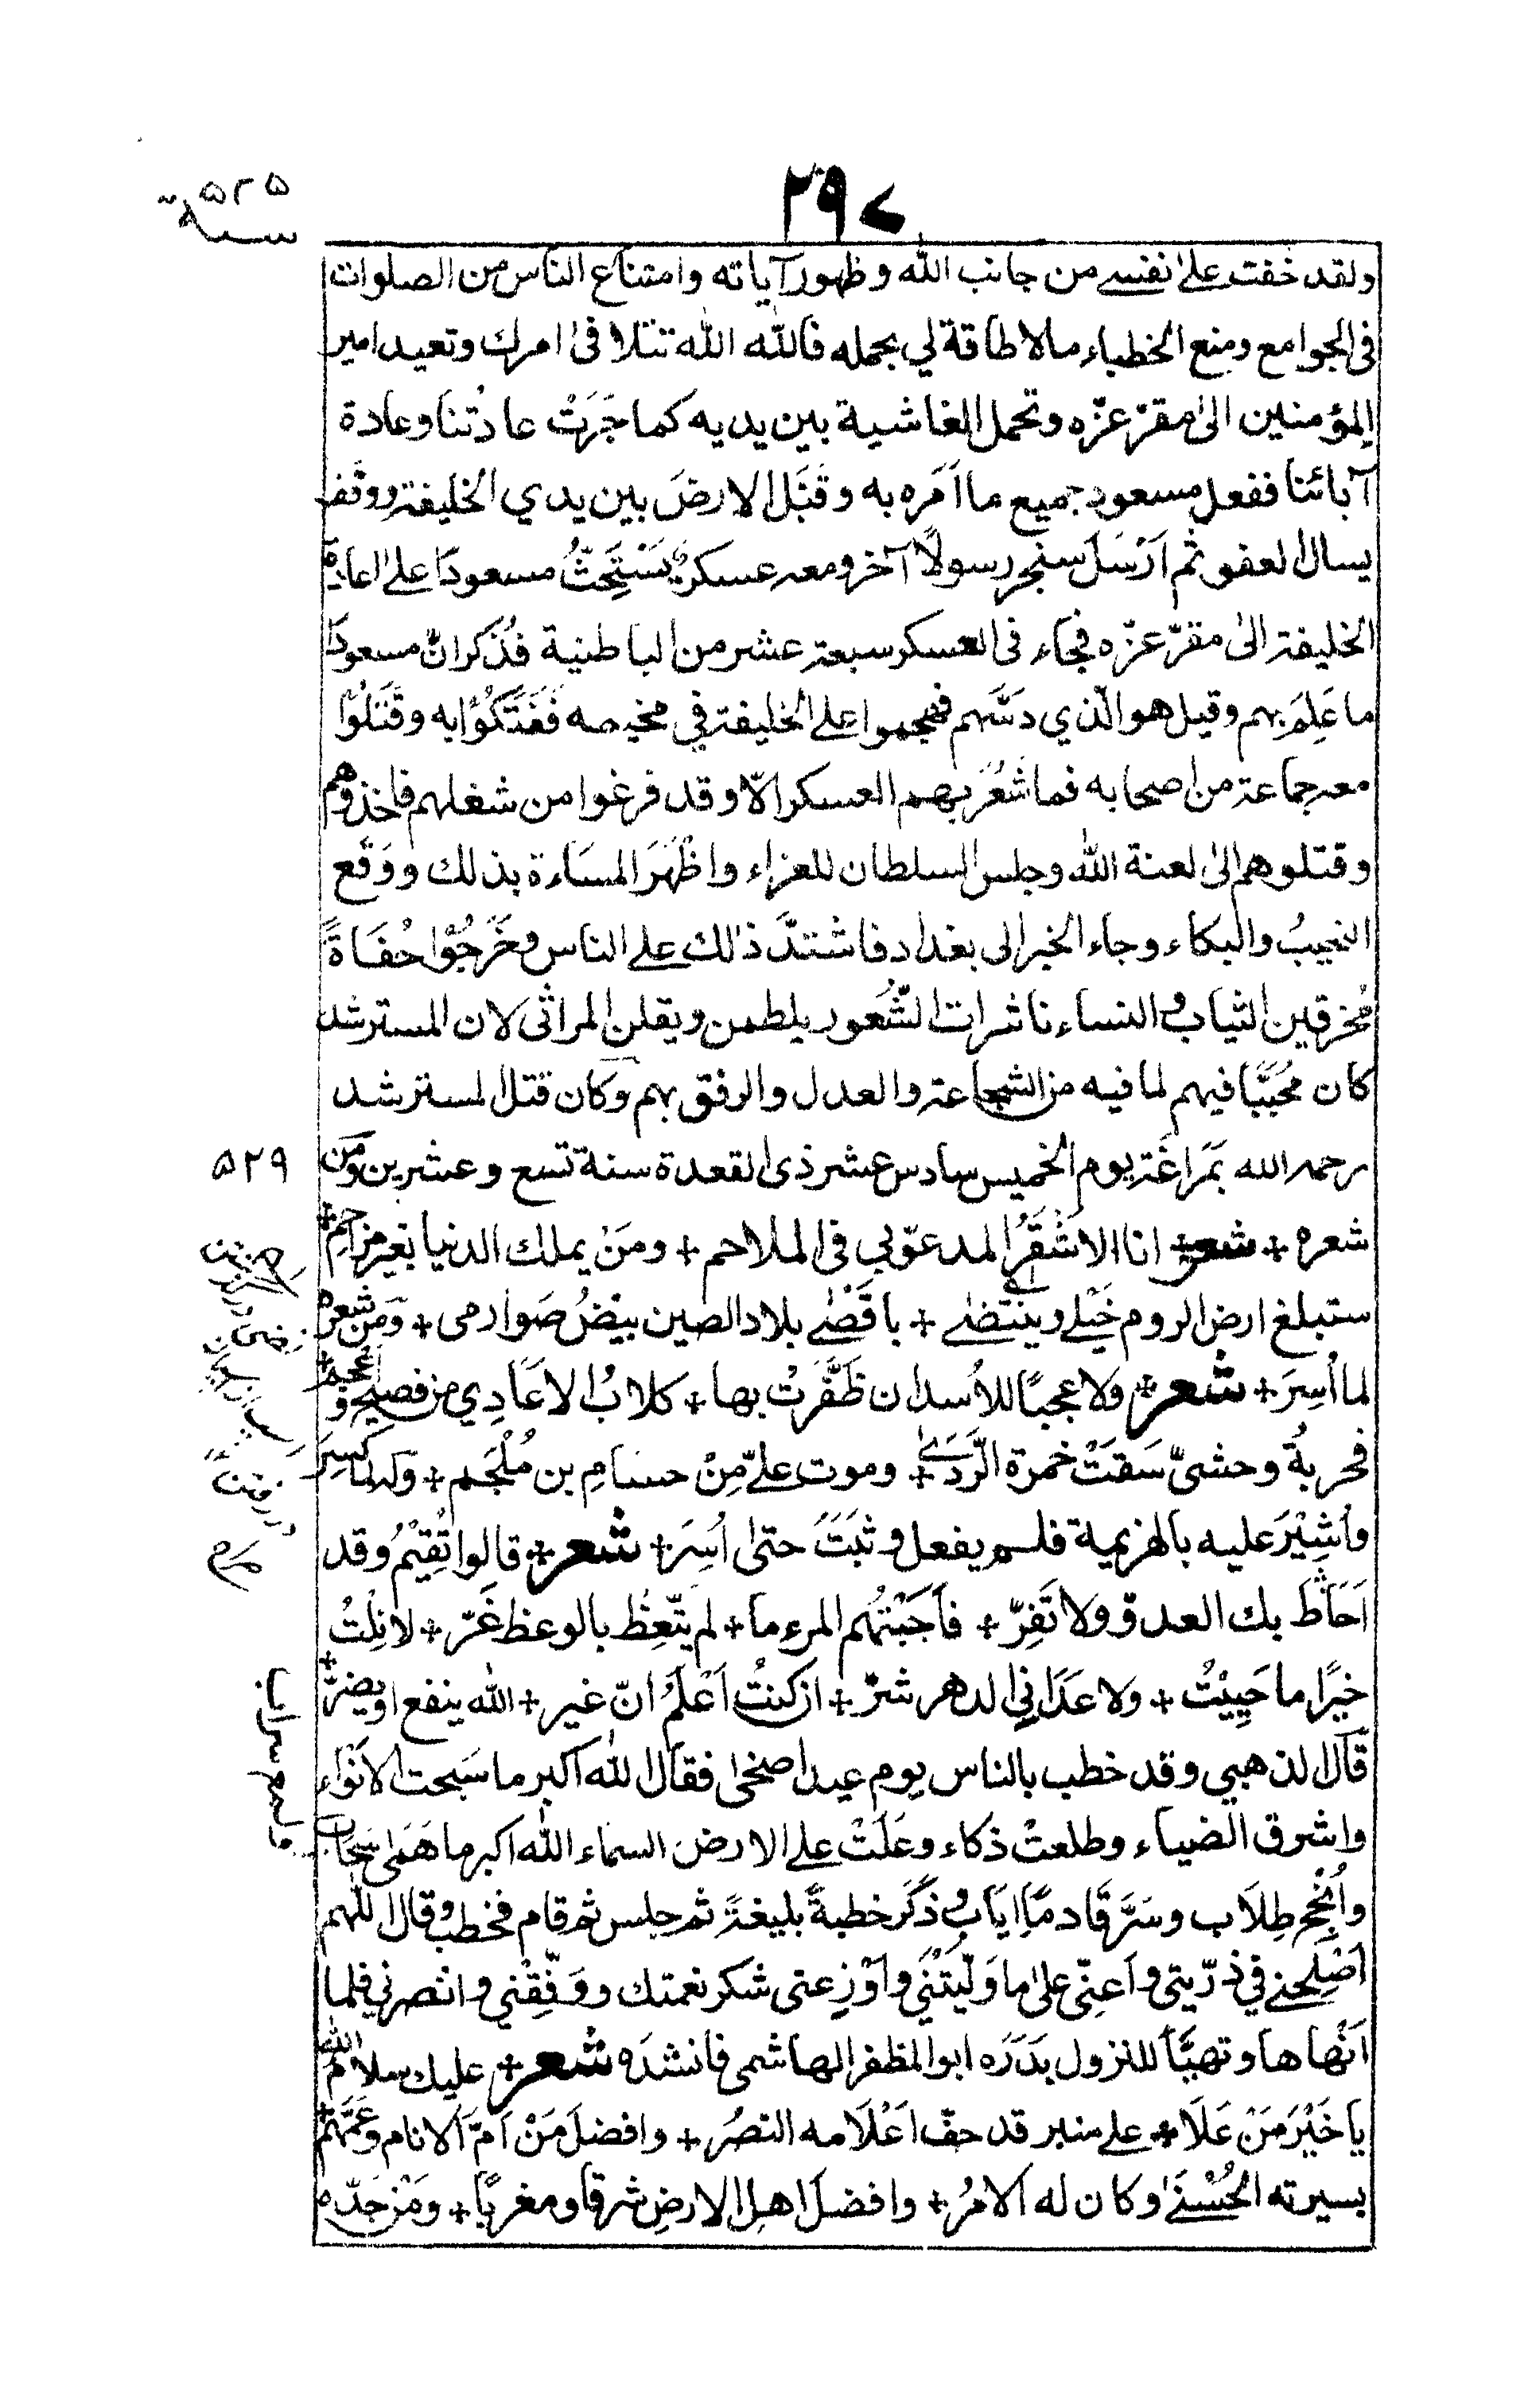 ٢٩٧
سنة ٥٢٥
ولقد خفت على نفسے من جانب الله وظهور آياته وامتناع الناس من الصلوات
فى الجوامع ومنع الخطباء مالا طاقة لي بحمله فالله الله تتلا فى امرك وتعيد امير
المؤمنين الىٰ مقرّ عزّه وتحمل الغاشية بين يديه كما جَرَتْ عادتُنا وعادة
آبائنا ففعل مسعود جميع ما اَمَره به وقَبَّل الارضَ بين يدي الخليفة ووقف
يسال العفو ثم اَرْسَلَ سنجر رسولًا آخر ومعه عسكرٌ يَسْتَحِثُّ مسعودًا على اعادة
الخليفة الىٰ مقرّ عزّه فجاء فى العسكر سبعة عشر من الباطنية فذُكر انّ مسعودًا
ما عَلِمَ بهم وقيل هو الّذي دسَّهم فهجموا على الخليفة في مخيمه فَفَتَكُوْا به وقَتَلُوْا
معه جماعة من اصحابه فما شَعُرَ بهم العسكر الّا وقد فرغوا من شغلهم فاخذوهم
وقتلوهم الىٰ لعنة الله وجلس السلطان للعزاء واظْهَرَ المسَاءة بذلك ووَقَع
النحيبُ والبكاء وجاء الخبر الى بغداد فاشتدَّ ذٰلك على الناس وخَرَجُوْا حُفَاةً
مُخرقين الثياب والنساء ناشرات الشُّعور يلطمن ويقلن المراثى لان المسترشد
كان مُحَبَّبًا فيهم لما فيه من الشجاعة والعدل والرفق بهم وكان قتل المسترشد
رحمه الله بمَرَاغَة يوم الخميس سادس عشر ذى القعدة سنة تسع وعشرين ومن
٥٢٩
شعره + شعر + انا الاشْقَرُ المدعوّ بي فى الملاحم + ومَنْ يملك الدنيا بغير مزاحِمِ +
ستبلغ ارض الروم خَيْلے وينتضےٰ + باقْصٰے بلاد الصين بيْضُ صَوارمى + ومن شعره
لما اُسِرَ + شعر + ولا عجبًا للاُسدان ظَفَرتْ بها + كلابُ الاعَادِي من فصيح واعجم +
فحربةُ وحشىّ سَقَتْ حمزة الرَّدَىٰ + وموت علىّ مِنْ حسامِ بن مُلْجَم + ولما كسِرَ
واُشِيْرَ عليه بالهزيمة فلم يفعل وثَبَتَ حتى اُسِرَ + شعر + قالوا تُقِيْمُ وقد
اَحَاطَ بك العدوّ ولا تَفِرّ + فاَجَبْتُهم المرء ما + لم يتّعِظْ بالوعظ غَرّ + لانِلْتُ
خيرًا ما حَيِيْتُ + ولا عَدَانِي الدهر شرّ + ان كنتُ اَعْلَمُ انّ غير + الله ينفع او يضرّ +
قال الذهبي وقد خطب بالناس يوم عيد اضحىٰ فقال الله اكبر ما سَبحت الانْوَاء
واشرق الضياء وطلعتْ ذكاء وعَلَتْ على الارض السماء الله اكبر ما هَمَىٰ سَحَاب
واُنْجِحَ طِلَاب وسَرَّ قَادمًا ايَاب وذَكَرَ خطبةً بليغةً ثم جلس ثم قام فخطب وقال اللهم
اَصْلِحْنے في ذرّيتي واَعِنّي على ما وَلَّيتَنْي واَوْزِعني شكر نعمتك ووَفِّقْني وانصرني فلما
اَنْهاها وتهيَّأ للنزول بدَرَه ابو المظفر الهاشمى فانشدَه شعر + عليك سلامُ الله
يا خَيْرَ مَنْ عَلَا + على منبر قد حفّ اَعْلَامه النصُر + وافضلَ مَنْ اَمَّ الانام وعَمَّهم +
بسيرته الحُسْنےٰ وكان له الامُر + وافضلَ اهل الارضِ شرقا ومغربًا + ومَنْ جَدّه